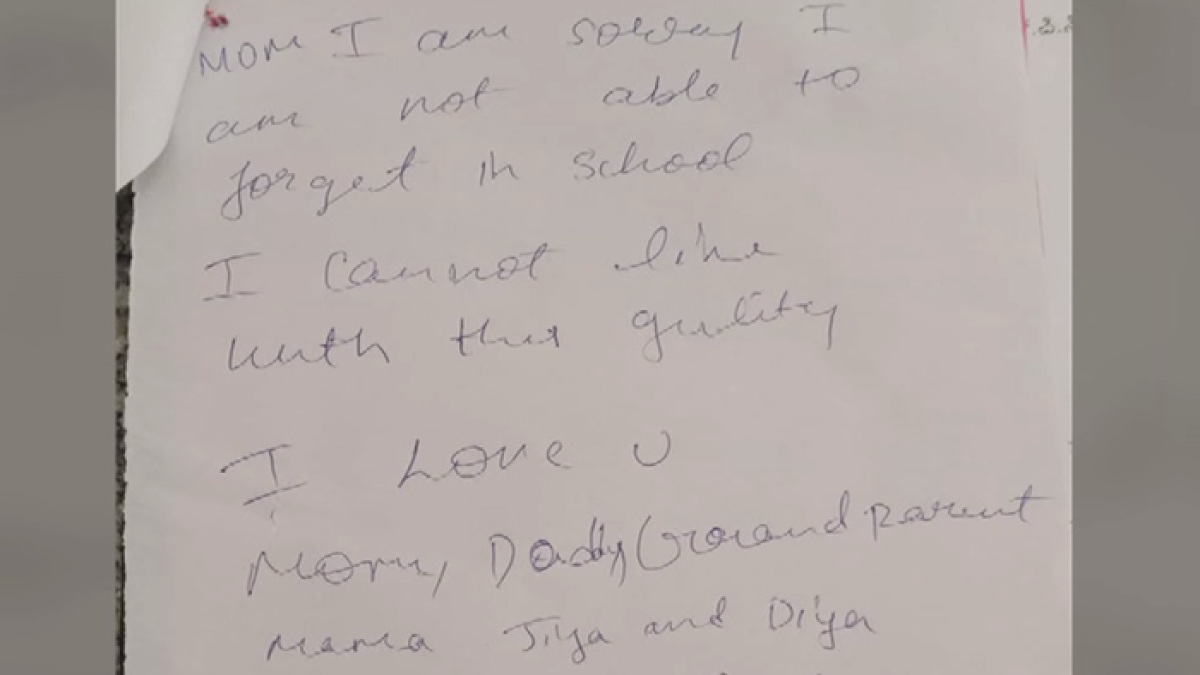 Mom I am sorry I
am not able to
forget in school
I cannot like
with this guility
I Love U
Mom, Daddy Grand parent
mama Jiya and Diya